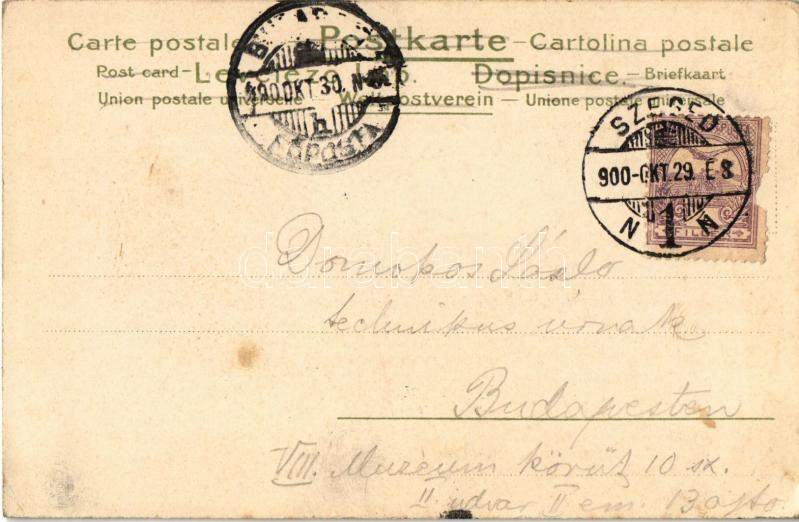 Carte postale – Postkarte – Cartolina postale
Post card – Dopisnice. – Briefkaart
Union postale universelle – Weltpostverein – Unione postale universale
900 OKT. 30. N
FŐPOSTA
SZEGED
900-OKT.29. E 8
N 1 N
FILLÉR
László
technikus úrnak
Budapesten
VIII. Muzeum körút 10 sz.
II udvar II em. 13 ajtó
darabanth